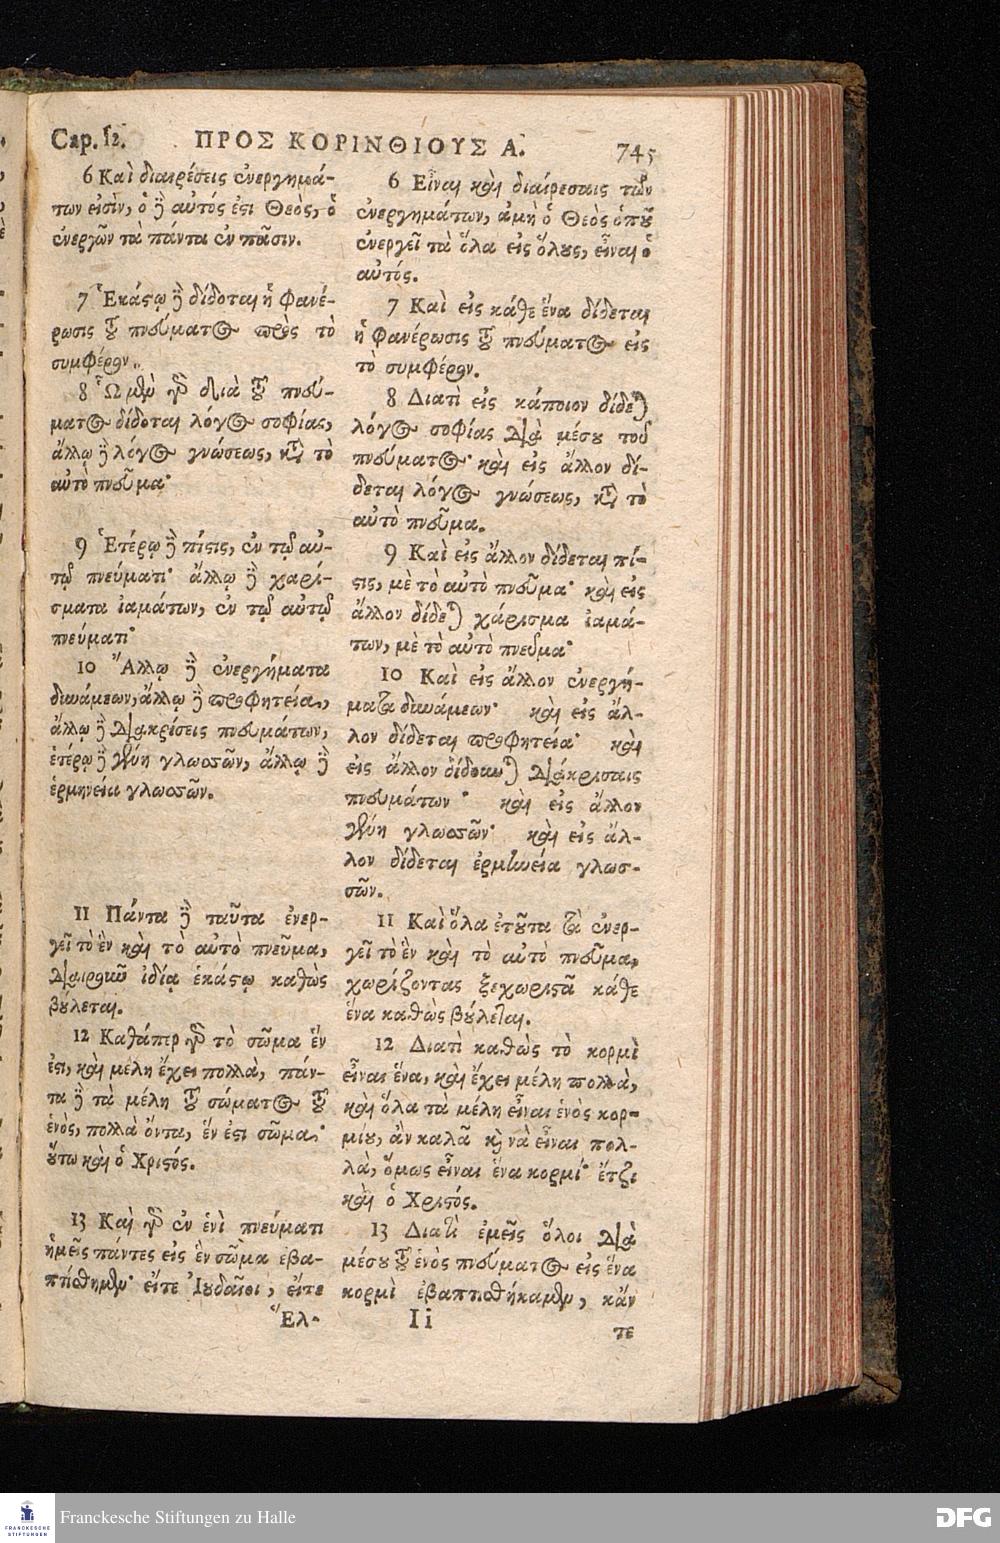 Cap. 12. ΠΡΟΣ ΚΟΡΙΝΘΙΟΥΣ Α. 745
6 Καὶ διαιρέσεις ἐνεργημά-
των εἰσὶν, ὁ δὲ αὐτός ἐστι Θεὸς, ὁ
ἐνεργῶν τὰ πάντα ἐν πᾶσιν.
7 Ἑκάστῳ δὲ δίδοται ἡ φανέ-
ρωσις τοῦ πνεύματος πρὸς τὸ
συμφέρον.
8 Ὧ μὲν γὰρ διὰ τοῦ πνεύ-
ματος δίδοται λόγος σοφίας,
ἄλλῳ δὲ λόγος γνώσεως, κατὰ τὸ
αὐτὸ πνεῦμα·
9 Ἑτέρῳ δὲ πίστις, ἐν τῷ αὐ-
τῷ πνεύματι· ἄλλῳ δὲ χαρί-
σματα ἰαμάτων, ἐν τῷ αὐτῷ
πνεύματι·
10 Ἄλλῳ δὲ ἐνεργήματα
δυνάμεων, ἄλλῳ δὲ προφητεία,
ἄλλῳ δὲ διακρίσεις πνευμάτων,
ἑτέρῳ δὲ γένη γλωσσῶν, ἄλλῳ δὲ
ἑρμηνεία γλωσσῶν.
11 Πάντα δὲ ταῦτα ἐνερ-
γεῖ τὸ ἓν καὶ τὸ αὐτὸ πνεῦμα,
διαιροῦν ἰδίᾳ ἑκάστῳ καθὼς
βούλεται.
12 Καθάπερ γὰρ τὸ σῶμα ἕν
ἐστι, καὶ μέλη ἔχει πολλὰ, πάν-
τα δὲ τὰ μέλη τοῦ σώματος τοῦ
ἑνὸς, πολλὰ ὄντα, ἕν ἐστι σῶμα·
οὕτω καὶ ὁ Χριστός.
13 Καὶ γὰρ ἐν ἑνὶ πνεύματι
ἡμεῖς πάντες εἰς ἓν σῶμα ἐβα-
πτίσθημεν· εἴτε Ἰουδαῖοι, εἴτε
Ἕλ-
6 Εἶναι καὶ διαίρεσαις τῶν
ἐνεργημάτων, ἀμὴ ὁ Θεὸς ὁποῦ
ἐνεργεῖ τὰ ὅλα εἰς ὅλους, εἶναι ὁ
αὐτός.
7 Καὶ εἰς κάθε ἕνα δίδεται
ἡ φανέρωσις τοῦ πνεύματος εἰς
τὸ συμφέρον.
8 Διατὶ εἰς κάποιον δίδεται
λόγος σοφίας διὰ μέσου τοῦ
πνεύματος· καὶ εἰς ἄλλον δί-
δεται λόγος γνώσεως, κατὰ τὸ
αὐτὸ πνεῦμα.
9 Καὶ εἰς ἄλλον δίδεται πί-
στις, μὲ τὸ αὐτὸ πνεῦμα· καὶ εἰς
ἄλλον δίδεται χάρισμα ἰαμά-
των, μὲ τὸ αὐτὸ πνεῦμα·
10 Καὶ εἰς ἄλλον ἐνεργή-
ματα δυνάμεων· καὶ εἰς ἄλ-
λον δίδεται προφητεία· καὶ
εἰς ἄλλον δίδουνται διάκρισαις
πνευμάτων· καὶ εἰς ἄλλον
γένη γλωσσῶν· καὶ εἰς ἄλ-
λον δίδεται ἑρμηνεία γλωσ-
σῶν.
11 Καὶ ὅλα ἐτοῦτα τὰ ἐνερ-
γεῖ τὸ ἓν καὶ τὸ αὐτὸ πνεῦμα,
χωρίζοντας ξεχωριστὰ κάθε
ἕνα καθὼς βούλεται.
12 Διατὶ καθὼς τὸ κορμὶ
εἶναι ἕνα, καὶ ἔχει μέλη πολλὰ,
καὶ ὅλα τὰ μέλη εἶναι ἑνὸς κορ-
μίου, ἂν καλὰ καὶ νὰ εἶναι πολ-
λὰ, ὅμως εἶναι ἕνα κορμί· ἔτζι
καὶ ὁ Χριστός.
13 Διατὶ ἐμεῖς ὅλοι διὰ
μέσου τοῦ ἑνὸς πνεύματος εἰς ἕνα
κορμὶ ἐβαπτισθήκαμεν, κἄν
Ii
τε
FRANCKESCHE
STIFTUNGEN
Franckesche Stiftungen zu Halle
DFG